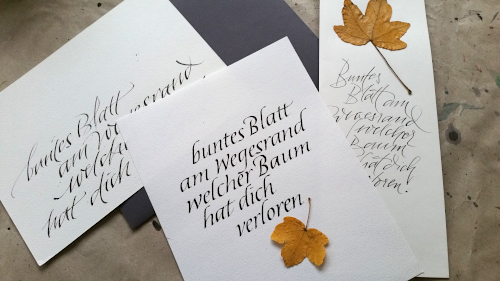 buntes Blatt
am Wegesrand
welcher
hat dich
buntes Blatt
am Wegesrand
welcher Baum
hat dich
verloren
Buntes
Blatt am
Wegesrand
welcher
Baum
hat dich
loren!